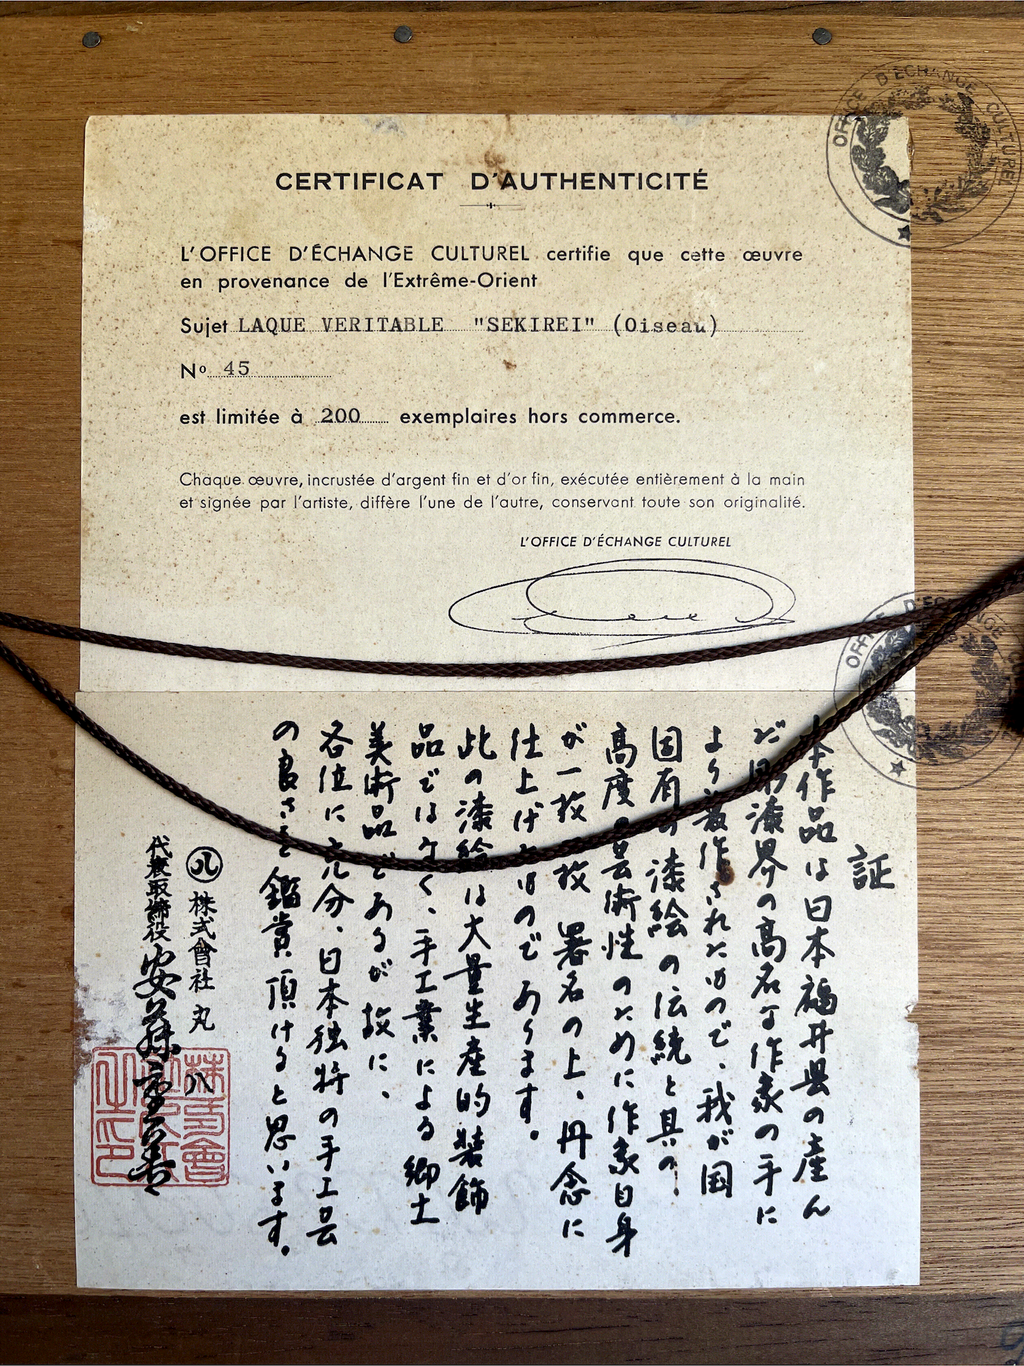 CERTIFICAT D'AUTHENTICITÉ
L'OFFICE D'ÉCHANGE CULTUREL certifie que cette œuvre
en provenance de l'Extrême-Orient
Sujet LAQUE VERITABLE "SEKIREI" (Oiseau)
Nº 45
est limitée à 200 exemplaires hors commerce.
Chaque œuvre, incrustée d'argent fin et d'or fin, exécutée entièrement à la main
et signée par l'artiste, diffère l'une de l'autre, conservant toute son originalité.
L'OFFICE D'ÉCHANGE CULTUREL
OFFICE D'ÉCHANGE CULTUREL
OFFICE D'ÉCHANGE
証
本作品は日本福井県の産ん
だ漆界の高名な作家の手に
より著作されたもので、我が国
固有の漆絵の伝統と其の
高度の芸術性のために作家自身
が一枚一枚署名の上、丹念に
仕上げたものであります。
此の漆絵は大量生産的装飾
品ではなく、手工業による郷土
美術品であるが故に、
各位に充分、日本独特の手工芸
の良さを鑑賞頂けると思います。
八 株式會社 丸八
代表取締役 安藤